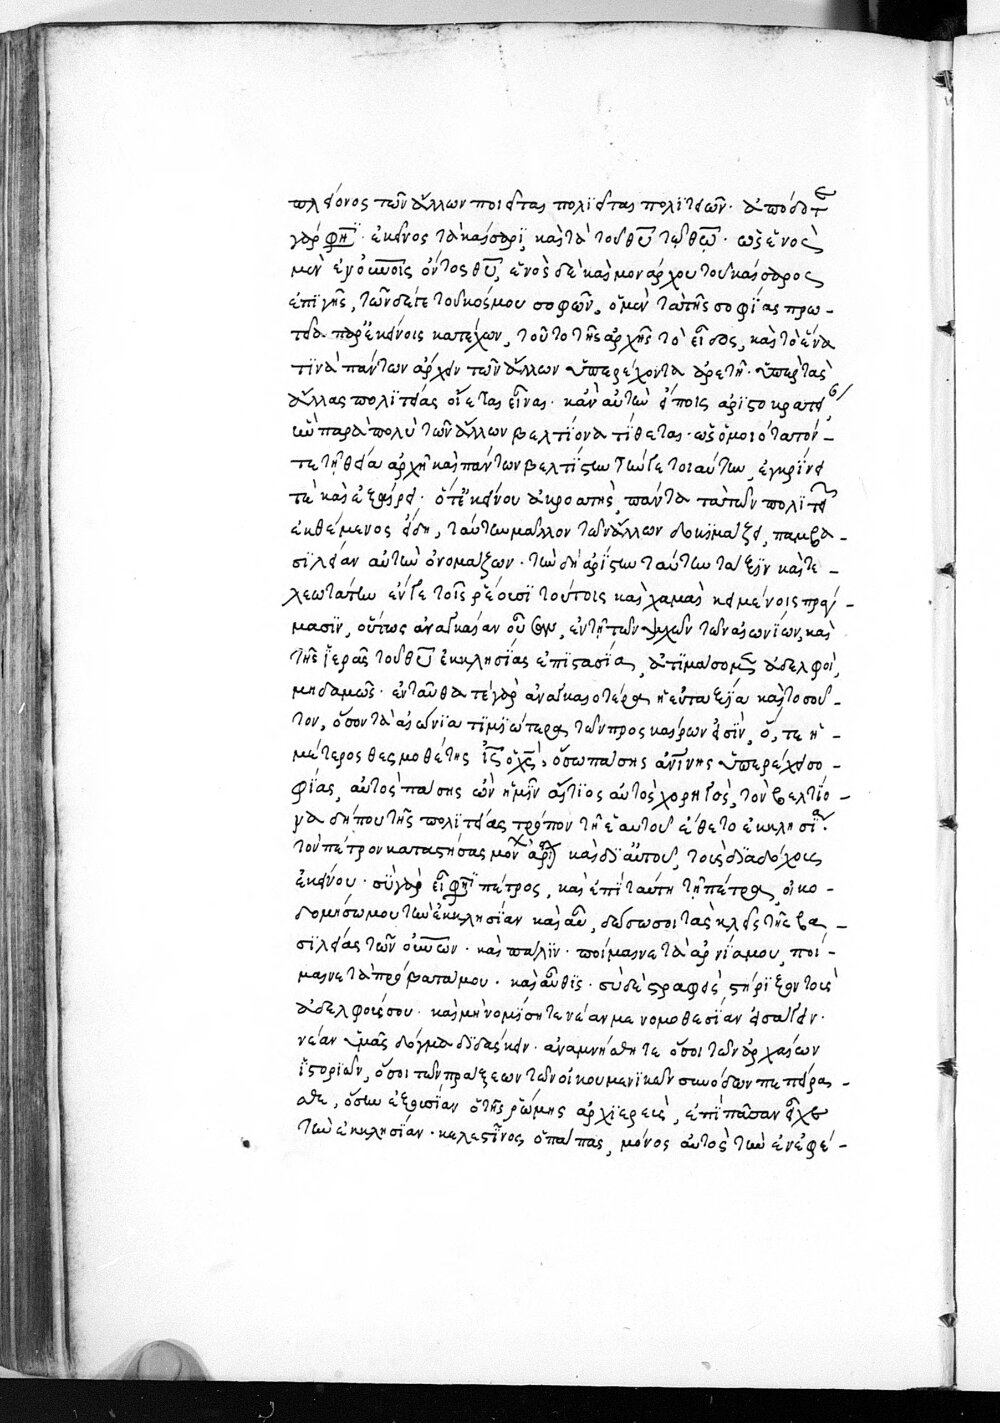 πλείονος τῶν ἄλλων ποιεῖται πολιτείας πολιτειῶν· ἀπόδοτε
γάρ φησι· ἐκεῖνος τὰ καίσαρι, καὶ τὰ τοῦ θῡ τῷ θῶ̄· ὡς ἑνὸς
μὲν ἐν οὐνοις ὄντος θῡ, ἑνὸς δὲ καὶ μονάρχου τοῦ καίσαρος
ἐπὶ γῆς, τῶν δέ γε τοῦ κόσμου σοφῶν, ὁ μὲν τὰ τῆς σοφίας πρω-
τεῖα παρ' ἐκείνοις κατέχων, τοῦτο τῆς ἀρχῆς τὸ εἶδος, καὶ τὸ ἕνα
τινὰ πάντων ἄρχειν τῶν ἄλλων ὑπερέχοντα ἀρετῇ· ὑπὲρ τὰς
ἄλλας πολιτείας οἴεται εἶναι· κἂν αὐτὴν εἴποις ἀριστοκρατείαν
ἣν παρὰ πολὺ τῶν ἄλλων βελτίονα τίθεται· ὡς ὁμοιοτάτην
τε τῇ θείᾳ ἀρχῇ καὶ πάντων βελτίστην τήν γε τοιαύτην, ἐγκρίνει
τε καὶ ἐξαίρει· ὅ τ' ἐκείνου ἀκροατὴς πάντα τὰ τῶν πολιτειῶν
ἐκθέμενος εἴδη, ταύτην μᾶλλον τῶν ἄλλων δοκιμάζει, παμβα-
σιλείαν αὐτὴν ὀνομάζων· τὴν δὴ ἀρίστην ταύτην τάξιν καὶ τε-
λεωτάτην ἐν γε τοῖς ῥέουσι τούτοις καὶ χαμαὶ κειμένοις πράγ-
μασιν, οὕτως ἀναγκαίαν οὖσαν, ἐν τῇ τῶν ψυχῶν τῶν αἰωνίων, καὶ
τῆς ἱερᾶς τοῦ θῡ ἐκκλησίας ἐπιστασίᾳ, ἀτιμάσομεν ἀδελφοί,
μηδαμῶς· ἐνταῦθά τε γὰρ ἀναγκαιοτέρα ἡ εὐταξία καὶ τοσοῦ-
τον, ὅσον τὰ αἰώνια τιμιώτερα τῶν προσκαίρων εἰσίν, ὅ, τε ἡ-
μέτερος θεσμοθέτης ἰ̄ς ὁ χ̄ς, ὅσῳ πάσης ἀν̄ίνης ὑπερέχει σο-
φίας, αὐτὸς πάσης ὢν ἡμῖν αἴτιος αὐτὸς χορηγὸς, τὸν βελτίο-
να δήπου τῆς πολιτείας τρόπον τῇ ἑαυτοῦ ἔθετο ἐκκλησίᾳ·
τὸν πέτρον καταστήσας μονάρχην καὶ δι' αὐτοῦ, τοὺς διαδόχους
ἐκείνου· σὺ γὰρ εἶ φησι πέτρος, καὶ ἐπὶ ταύτῃ τῇ πέτρᾳ, οἰκο-
δομήσω μου τὴν ἐκκλησίαν καὶ αὖ, δώσω σοι τὰς κλεῖς τῆς βα-
σιλείας τῶν οὐνῶν· καὶ πάλιν· ποίμαινε τὰ ἀρνία μου, ποί-
μαινε τὰ πρόβατά μου· καὶ αὖθις· σὺ δὲ στραφεὶς στήριξον τοὺς
ἀδελφούς σου· καὶ μὴ νομίσητε νέαν με νομοθεσίαν εἰσάγειν·
νέαν ὑμᾶς δόγμα διδάσκειν· ἀναμνήσθητε ὅσοι τῶν ἀρχαίων
ἱστοριῶν, ὅσοι τῶν πράξεων τῶν οἰκουμενικῶν συνόδων πεπείρα-
σθε, ὅσην ἐξουσίαν ὁ τῆς ῥώμης ἀρχιερεὺς, ἐπὶ πᾶσαν ἔχει
τὴν ἐκκλησίαν· κελεστῖνος ὁ πάπας, μόνος αὐτὸς τὴν ἐν ἐφέ-